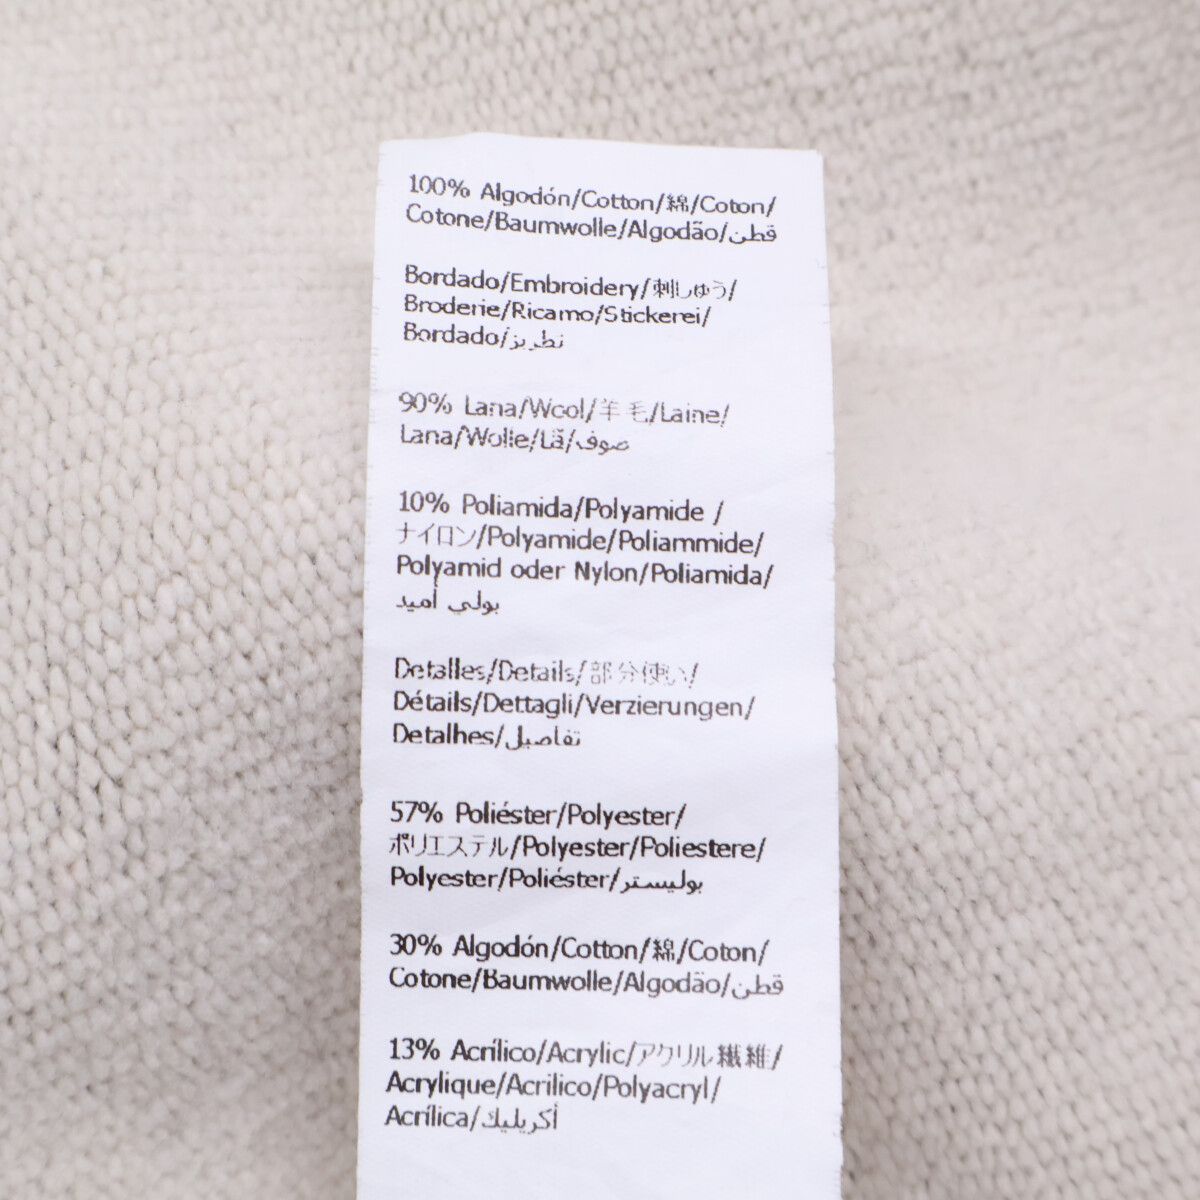 100% Algodón/Cotton/綿/Coton/
Cotone/Baumwolle/Algodão/قطن
Bordado/Embroidery/刺しゅう/
Broderie/Ricamo/Stickerei/
Bordado/تطريز
90% Lana/Wool/羊毛/Laine/
Lana/Wolle/Lã/صوف
10% Poliamida/Polyamide /
ナイロン/Polyamide/Poliammide/
Polyamid oder Nylon/Poliamida/
بولي أميد
Detalles/Details/部分使い/
Détails/Dettagli/Verzierungen/
Detalhes/تفاصيل
57% Poliéster/Polyester/
ポリエステル/Polyester/Poliestere/
Polyester/Poliéster/بوليستر
30% Algodón/Cotton/綿/Coton/
Cotone/Baumwolle/Algodão/قطن
13% Acrílico/Acrylic/アクリル繊維/
Acrylique/Acrilico/Polyacryl/
Acrílica/أكريليك